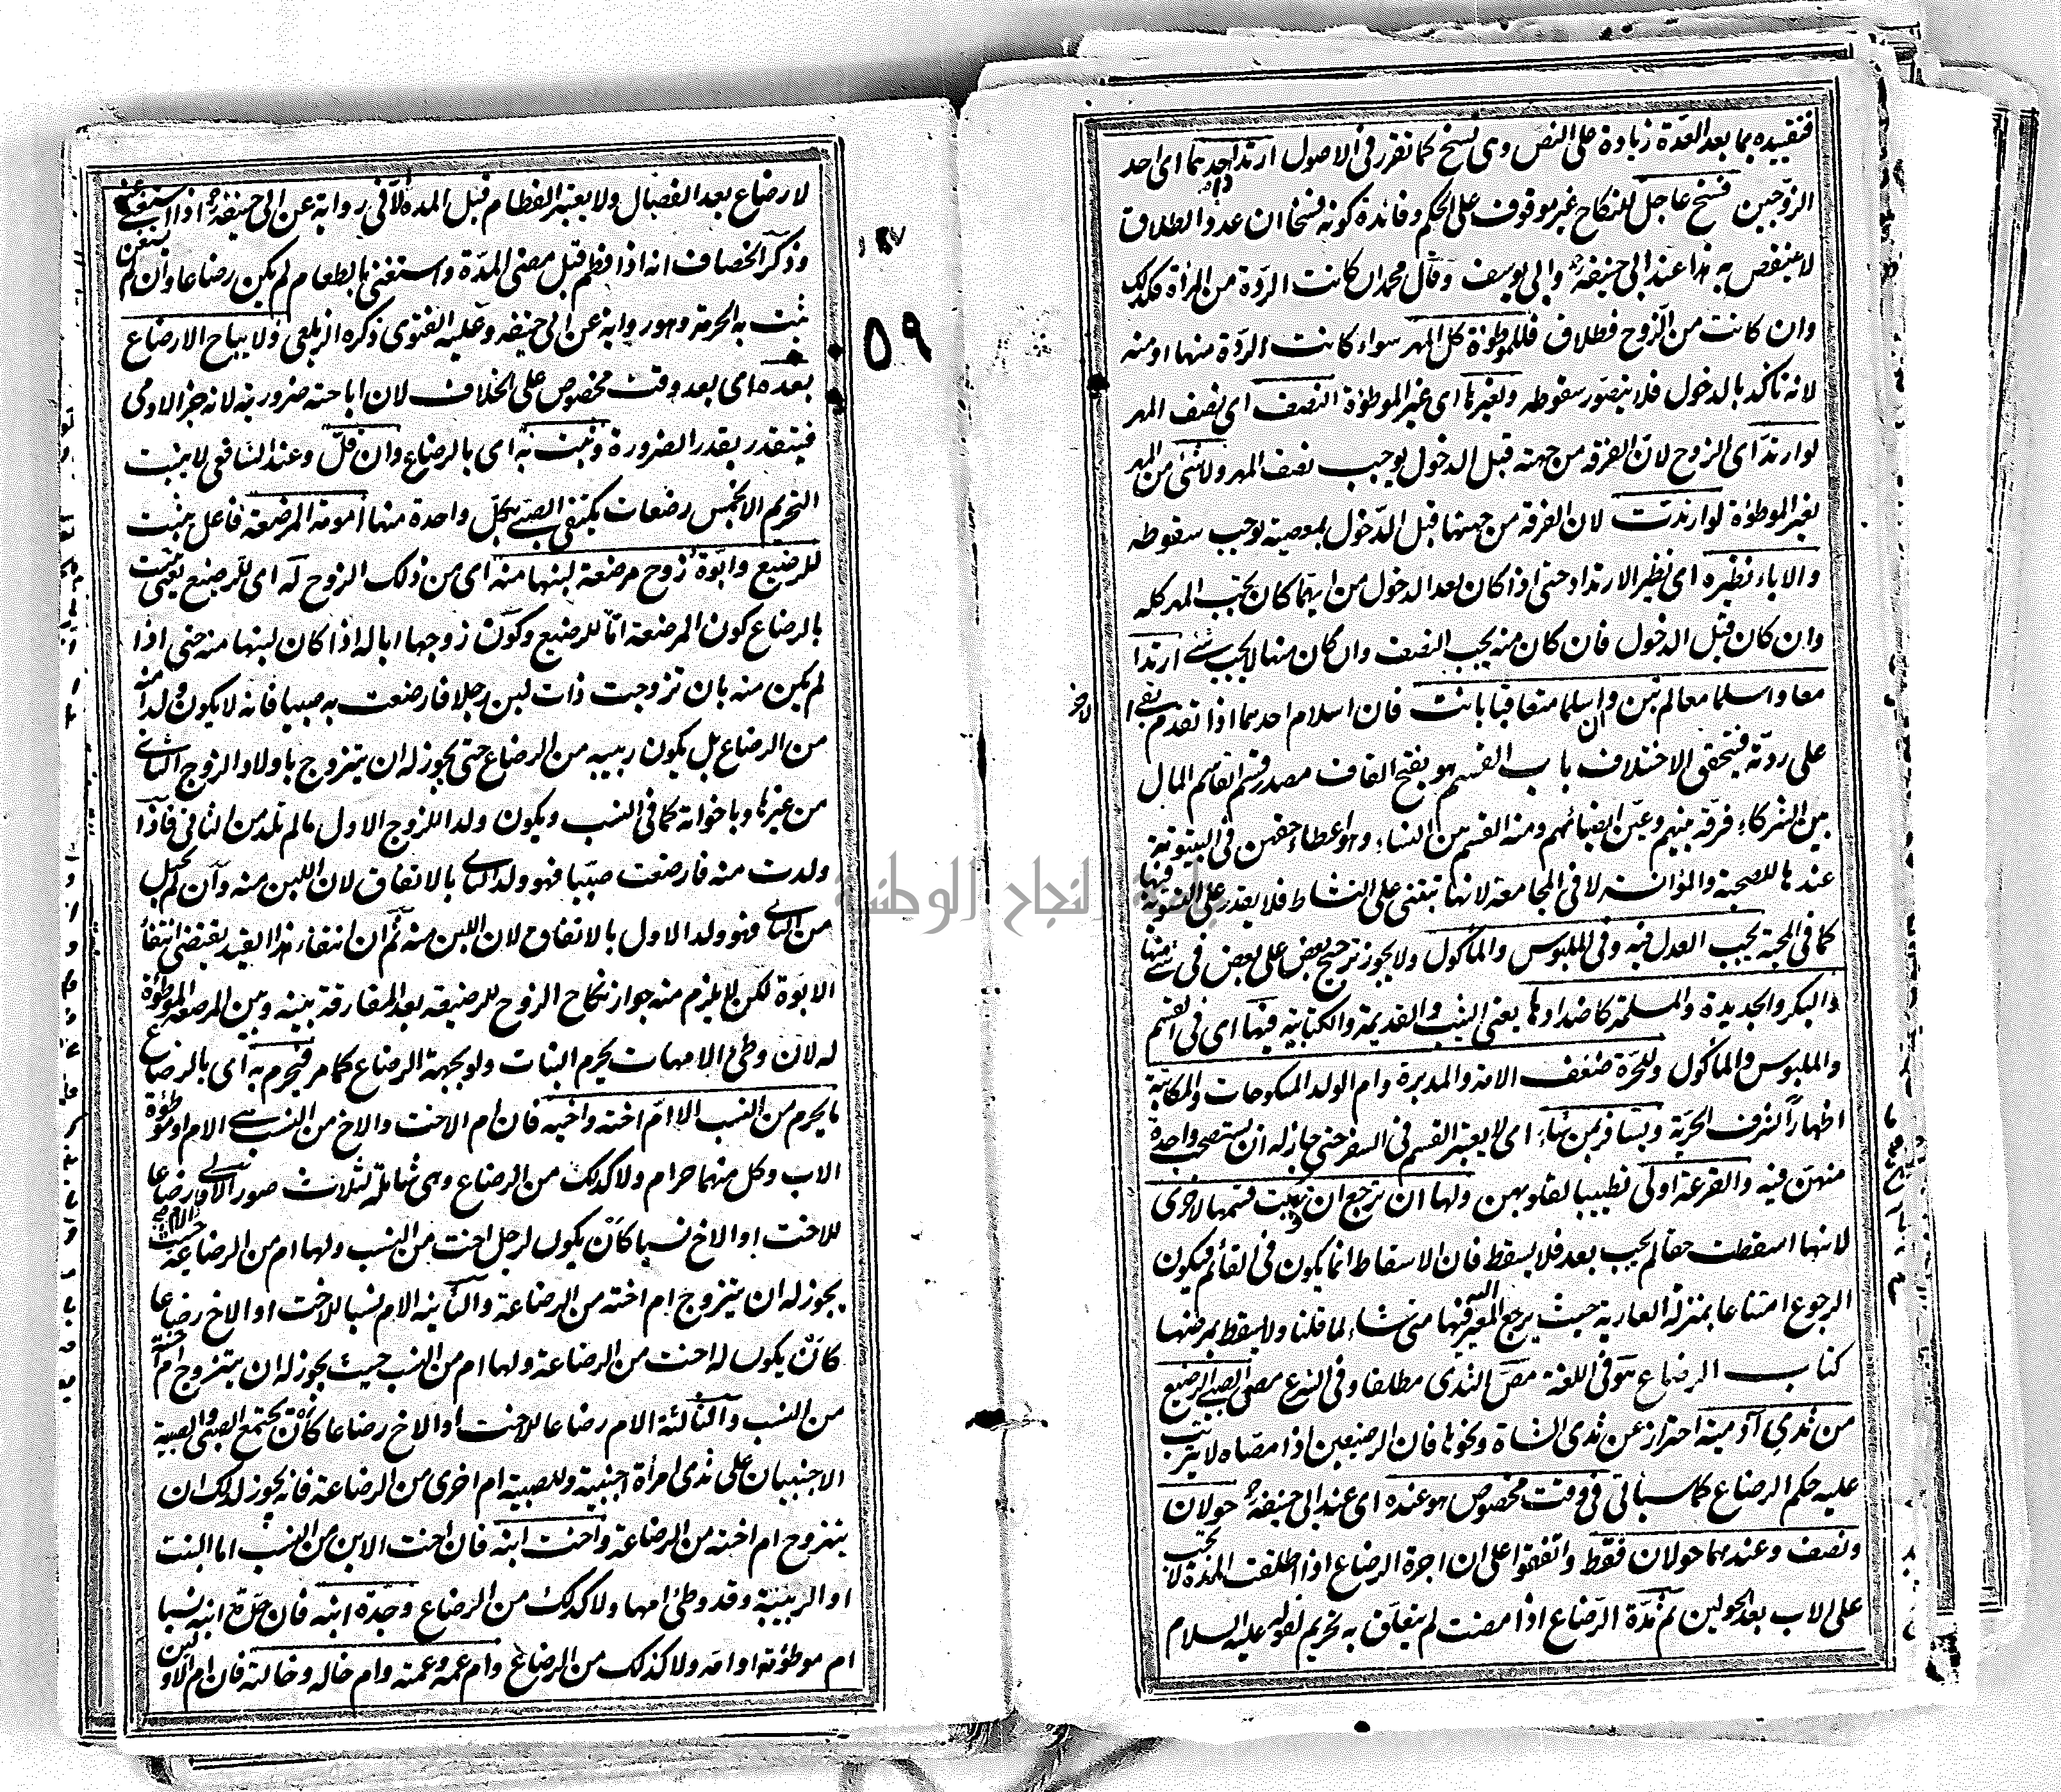 فتقييده بما بعد العدة زيادة على النص وهى نسخ كما تقرر فى الاصول ارتد احدهما اى احد
الزوجين فسخ عاجل للنكاح غير موقوف على الحكم وفائدة كونه فسخا ان عدد الطلاق
لا ينتقص به هذا عند ابى حنيفة وابى يوسف وقال محمد ان كانت الردة من المرأة فكذلك
وان كانت من الزوح فطلاق فللموطوة كل المهر سواء كانت الردة منها او منه
لانه تأكد بالدخول فلا يتصور سقوطه ولغيرها اى غير الموطوة النصف اى نصف المهر
لو ارتد اى الزوح لان الفرقة من جهته قبل الدخول يوجب نصف المهر ولا شئ من المهر
لغير الموطوة لو ارتدت لان الفرقة من جهتها قبل الدخول بمعصية يوجب سقوطه
والاباء نظيره اى نظير الارتداد حتى اذا كان بعد الدخول من ايهما كان يجب المهر كله
وان كان قبل الدخول فان كان منه يجب النصف وان كان منها لا يجب شئ ارتدا
معا واسلما معا لم تبن وان اسلما متعاقبا بانت فان اسلام احدهما اذا تقدم بقى الاخر
على ردته فيتحقق الاختلاف باب القسم هو بفتح القاف مصدر قسم القاسم المال
بين الشركاء فرقه بينهم وعين انصبائهم ومنه القسم بين النساء وهو اعطاء حقهن فى البيتوتة
عندها للصحبة والموانسة لا فى المجامعة لانها تبتنى على النشاط فلا يقدر على التسوية فيها
كما فى المحبة يجب العدل فيه وفى الملبوس والمأكول ولا يجوز ترجيح بعض على بعض فى شئ منها
والبكر والجديدة والمسلمة كاضدادها يعنى الثيب والقديمة والكتابية فيها اى فى القسم
والملبوس والمأكول وللحرة ضعف الامة والمدبرة وام الولد المنكوحات والمكاتبة
اظهارا لشرف الحرية ويسافر بمن شاء اى لا يعتبر القسم فى السفر حتى جاز له ان يستصحب واحدة
منهن فيه والقرعة اولى تطييبا لقلوبهن ولها ان ترجع ان وهبت قسمها لاخرى
لانها اسقطت حقا لم يجب بعد فلا يسقط فان الاسقاط انما يكون فى القائم فيكون
الرجوع امتناعا بمنزلة العارية حيث يرجع المعير فيها متى شاء لما قلنا ولا يسقط بمرضها
كتاب الرضاع هو فى اللغة مص الثدى مطلقا وفى الشرع مص الصبى الرضيع
من ثدى آدمية احتراز عن ثدى الشاة ونحوها فان الرضيعين اذا مصاه لا يترتب
عليه حكم الرضاع كما سيأتى فى وقت مخصوص هو عنده اى عند ابى حنيفة حولان
ونصف وعندهما حولان فقط واتفقوا على ان اجرة الرضاع اذا طلقت المدة لا تجب
على الاب بعد الحولين ثم مدة الرضاع اذا مضت لم يتعلق به تحريم لقوله عليه السلام
لا رضاع بعد الفصال ولا يعتبر الفطام قبل المدة الا فى رواية عن ابى حنيفة اذا استغنى عنه
وذكر الخصاف انه اذا فطم قبل مضى المدة واستغنى بالطعام لم يكن رضاعا وان لم يستغن
ثبت به الحرمة وهو رواية عن ابى حنيفة وعليه الفتوى ذكره الزيلعى ولا يباح الارضاع
بعده اى بعد وقت مخصوص على الخلاف لان اباحته ضرورية لانه جزء الادمى
فيتقدر بقدر الضرورة وثبت به اى بالرضاع وان قل وعند الشافعى لا يثبت
التحريم الا بخمس رضعات يكتفى الصبى بكل واحدة منها امومة المرضعة فاعل يثبت
للرضيع وابوة زوج مرضعة لبنها منه اى من ذلك الزوح له اى للرضيع يعنى يثبت
بالرضاع كون المرضعة اما للرضيع وكون زوجها ابا له اذا كان لبنها منه حتى اذا
لم يكن منه بان تزوجت ذات لبن رجلا فارضعت به صبيا فانه لا يكون ولدا منه
من الرضاع بل يكون ربيبه من الرضاع حتى يجوز له ان يتزوج باولاد الزوج الثانى
من غيرها وباخواته كما فى النسب ويكون ولدا للزوج الاول ما لم تلد من الثانى فاذا
ولدت منه فارضعت صبيا فهو ولد الثانى بالاتفاق لان اللبن منه وان لم تحبل
من الثانى فهو ولد الاول بالاتفاق لان اللبن منه ثم ان انتفاء هذا القيد يقتضى انتفاء
الابوة لكن لا يلزم منه جواز نكاح الزوح للرضيعة بعد المفارقة بينه وبين المرضعة الموطوة
له لان وطئ الامهات يحرم البنات ولو بجهة الرضاع كما مر فيحرم به اى بالرضاع
ما يحرم من النسب الا ام اخته واخيه فان ام الاخت والاخ من النسب هى الام او موطوة
الاب وكل منهما حرام ولا كذلك من الرضاع وهى شاملة لثلاث صور الاولى الام رضاعا
للاخت او الاخ نسبا كأن يكون لرجل اخت من النسب ولها ام من الرضاعة حيث
يجوز له ان يتزوج ام اخته من الرضاعة والثانية الام نسبا للاخت او الاخ رضاعا
كأن يكون له اخت من الرضاعة ولها ام من النسب حيث يجوز له ان يتزوج ام اخته
من النسب والثالثة الام رضاعا للاخت او الاخ رضاعا كأن يجتمع الصبى والصبية
الاجنبيان على ثدى امرأة اجنبية وللصبية ام اخرى من الرضاعة فانه يجوز لذلك ان
يتزوج ام اخته من الرضاعة واخت ابنه فان اخت الابن من النسب اما البنت
او الربيبة وقد وطئ امها ولا كذلك من الرضاع وجدة ابنه فان جدة ابنه نسبا
ام موطوئته او امه ولا كذلك من الرضاع وام عمه وعمته وام خاله وخالته فان ام الاولين
٥٩
جامعة النجاح الوطنية